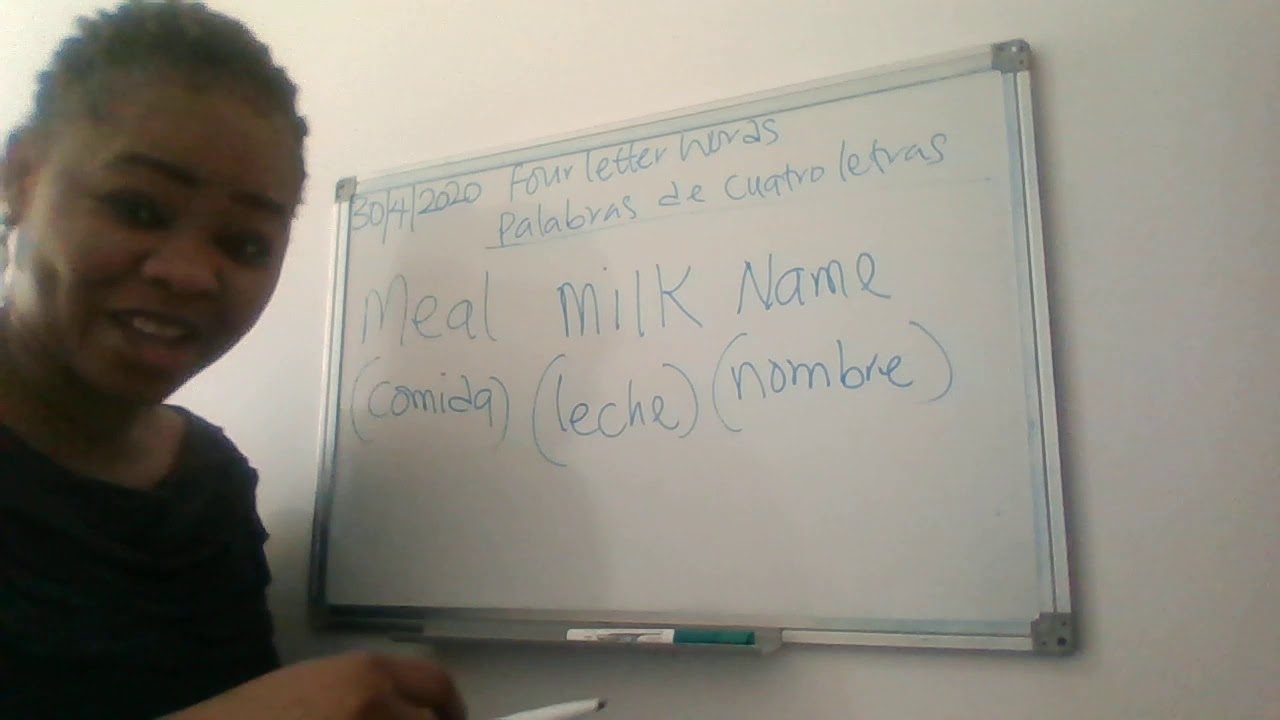 30/4/2020 Four letter words
Palabras de cuatro letras
Meal milk Name
(comida) (leche) (nombre)